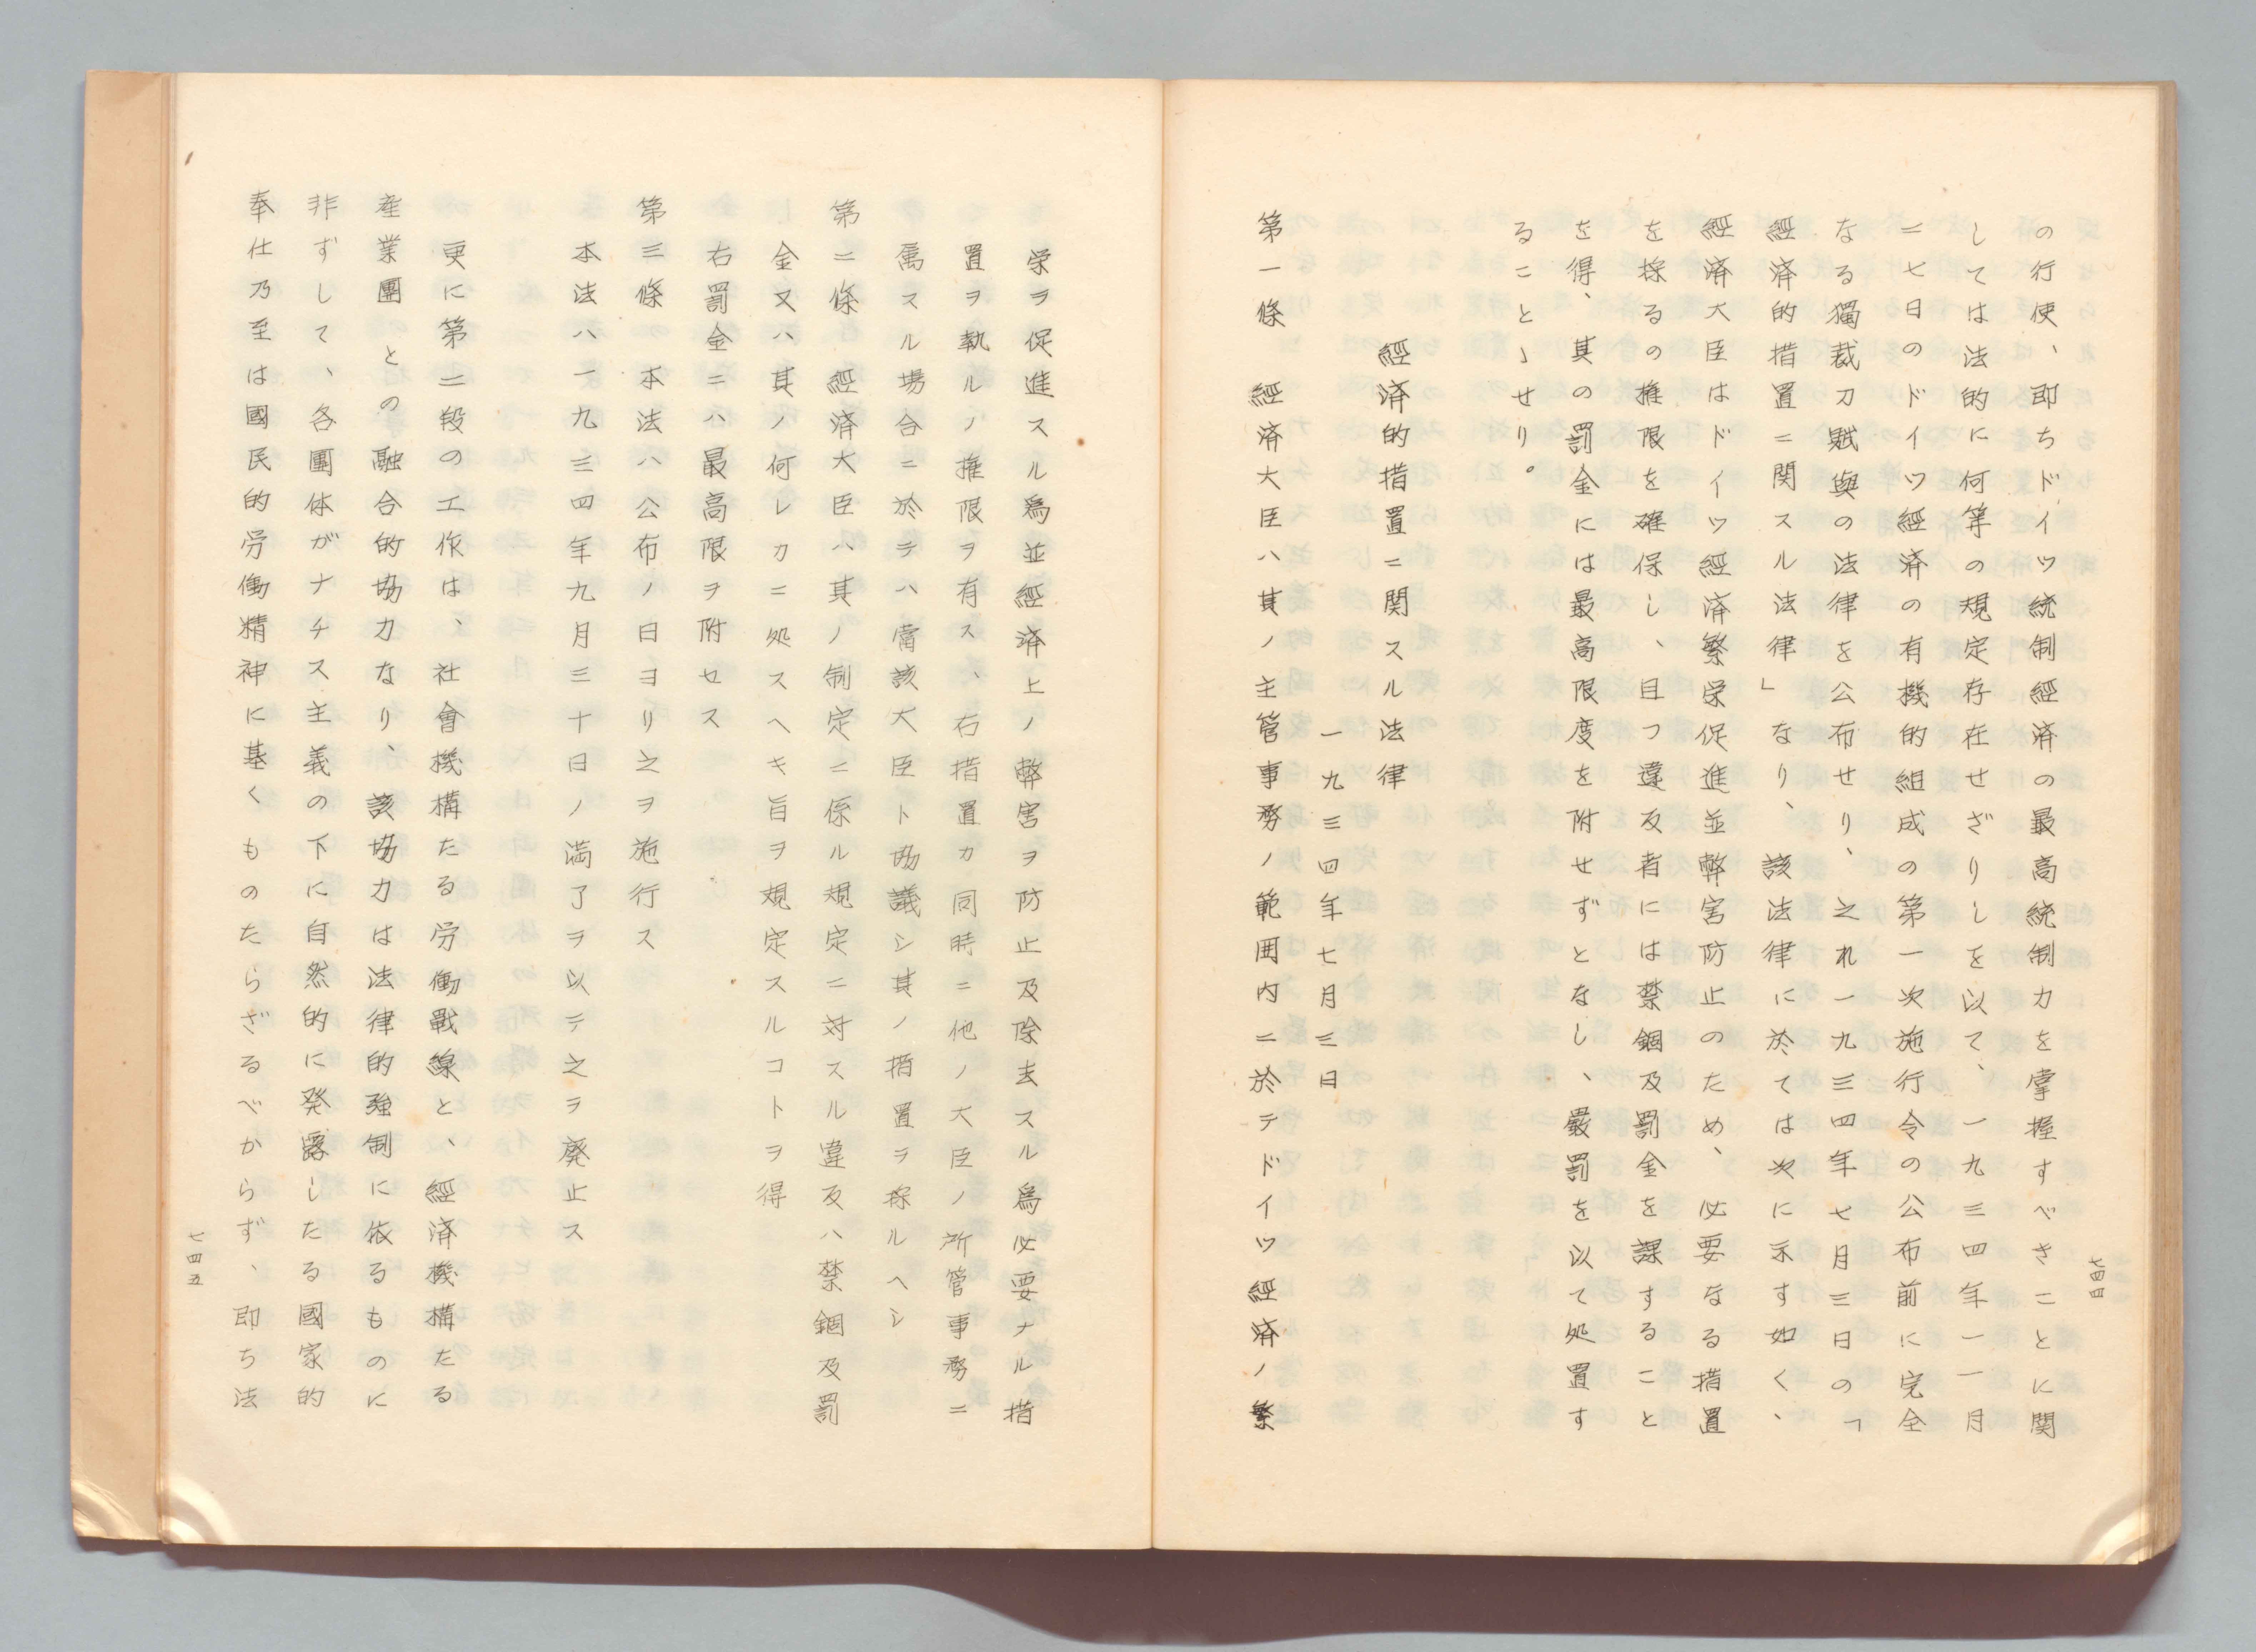 の行使、即ちドイツ統制經済の最高統制力を掌握すべきことに関
しては法的に何等の規定存在せざりしを以て、一九三四年一一月
二七日のドイツ經済の有機的組成の第一次施行令の公布前に完全
なる獨裁力賦與の法律を公布せり、之れ一九三四年七月三日の「
經済的措置ニ関スル法律」なり、該法律に於ては次に示す如く、
經済大臣はドイツ經済繁栄促進並弊害防止のため、必要なる措置
を採るの権限を確保し、且つ違反者には禁錮及罰金を課すること
を得、其の罰金には最高限度を附せずとなし、嚴罰を以て処置す
ることゝせり。
經済的措置ニ関スル法律
一九三四年七月三日
第一條 經済大臣ハ其ノ主管事務ノ範囲内ニ於テドイツ經済ノ繁
七四四
栄ヲ促進スル爲並經済上ノ弊害ヲ防止及除去スル爲必要ナル措
置ヲ執ルノ権限ヲ有ス、右措置カ同時ニ他ノ大臣ノ所管事務ニ
属スル場合ニ於テハ當該大臣ト協議シ其ノ措置ヲ採ルヘシ
第二條 經済大臣ハ其ノ制定ニ係ル規定ニ対スル違反ハ禁錮及罰
金又ハ其ノ何レカニ処スヘキ旨ヲ規定スルコトヲ得
右罰金ニハ最高限ヲ附セス
第三條 本法ハ公布ノ日ヨリ之ヲ施行ス
本法ハ一九三四年九月三十日ノ満了ヲ以テ之ヲ廃止ス
更に第二段の工作は、社會機構たる労働戰線と、經済機構たる
産業團との融合的協力なり、該協力は法律的強制に依るものに
非ずして、各團体がナチス主義の下に自然的に発露したる國家的
奉仕乃至は國民的労働精神に基くものたらざるべからず、即ち法
七四五